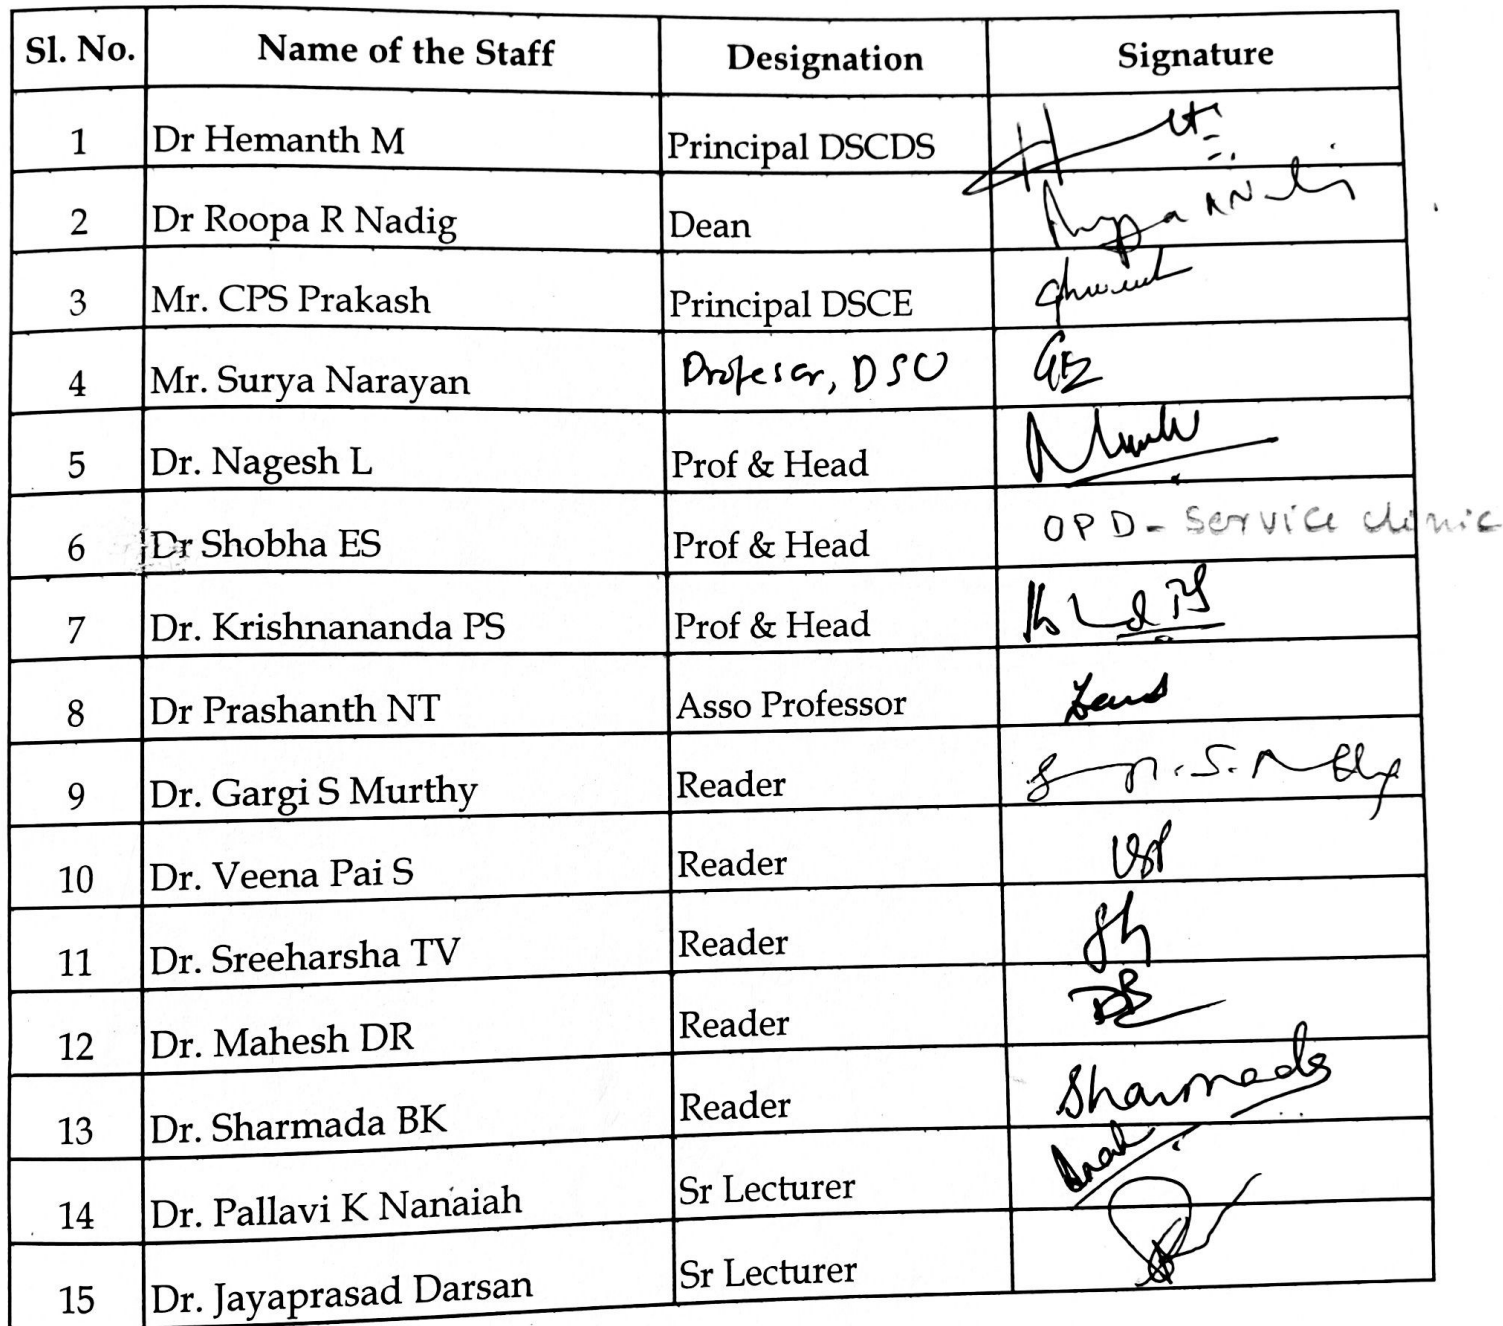 Sl. No. Name of the Staff Designation Signature
1 Dr Hemanth M Principal DSCDS
2 Dr Roopa R Nadig Dean
3 Mr. CPS Prakash Principal DSCE
4 Mr. Surya Narayan Profesor, DSU
5 Dr. Nagesh L Prof & Head
6 Dr Shobha ES Prof & Head OPD - Service clinic
7 Dr. Krishnananda PS Prof & Head
8 Dr Prashanth NT Asso Professor
9 Dr. Gargi S Murthy Reader
10 Dr. Veena Pai S Reader
11 Dr. Sreeharsha TV Reader
12 Dr. Mahesh DR Reader
13 Dr. Sharmada BK Reader Sharmada
14 Dr. Pallavi K Nanaiah Sr Lecturer
15 Dr. Jayaprasad Darsan Sr Lecturer